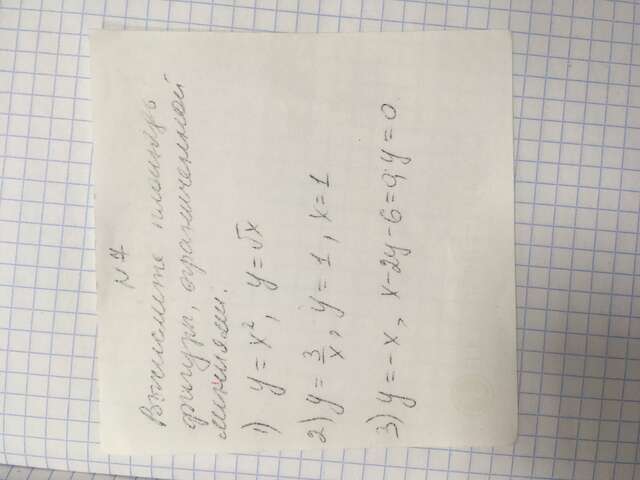 N 7
Вычислите площадь
фигуры, ограниченной
линиями.
1) y = x², y = √x
2) y = 3/x, y = 1, x = 1
3) y = -x, x - 2y - 6 = 0, y = 0.